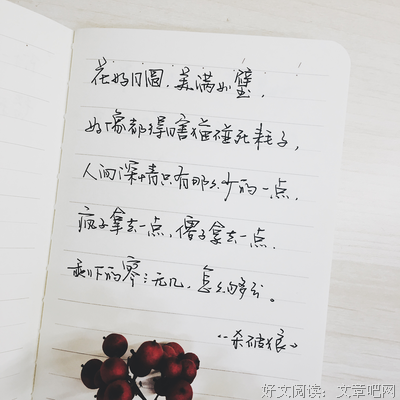 花好月圆,美满如璧,
好像都得瞎猫碰死耗子,
人间深情只有那么少的一点,
疯子拿去一点,傻子拿去一点,
剩下的寥寥无几,怎么够分。
《杀破狼》
好文阅读:文章吧网